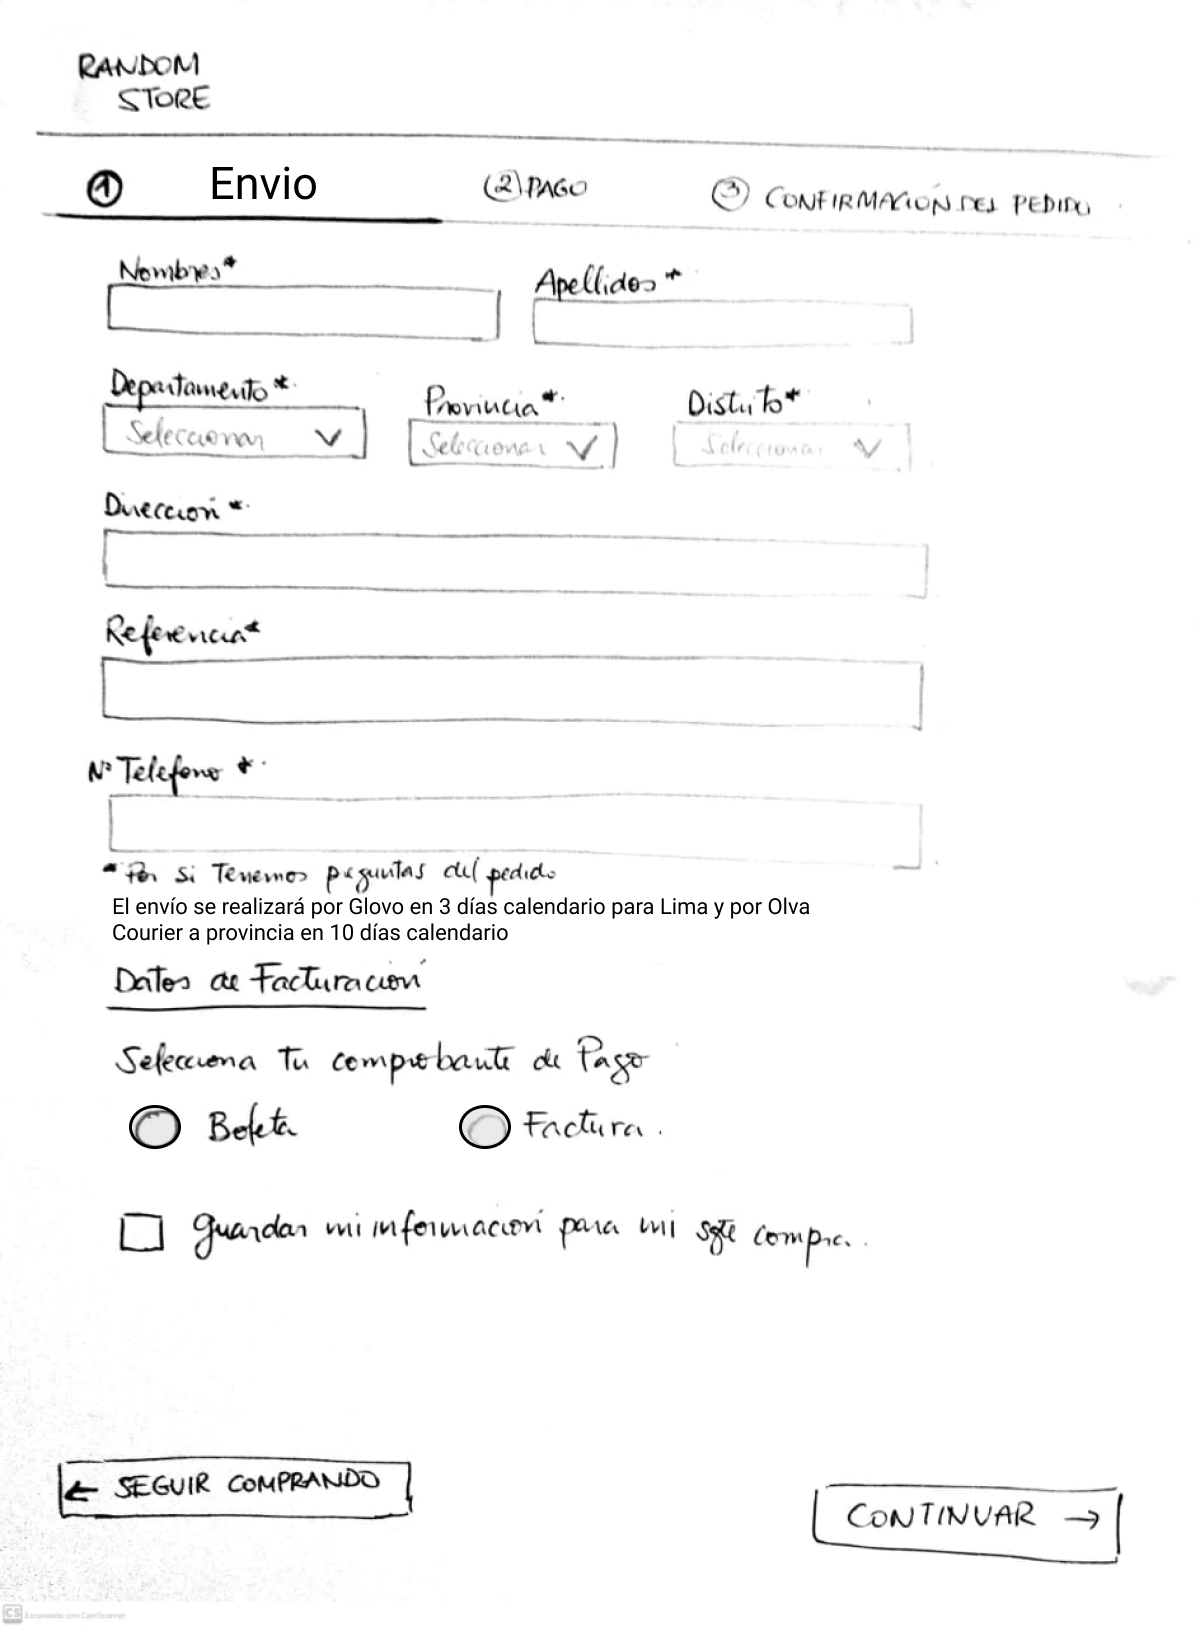 RANDOM
STORE
1 Envio (2) PAGO 3 CONFIRMACIÓN DEL PEDIDO
Nombres* Apellidos*
Departamento* Provincia* Distrito*
Seleccionar Seleccionar Seleccionar
Dirección*
Referencia*
N° Teléfono *
*Por si Tenemos preguntas del pedido
El envío se realizará por Glovo en 3 días calendario para Lima y por Olva
Courier a provincia en 10 días calendario
Datos de Facturación
Selecciona tu comprobante de Pago
Boleta Factura.
Guardar mi información para mi sgte compra.
← SEGUIR COMPRANDO
CONTINUAR →
CS Escaneado con CamScanner